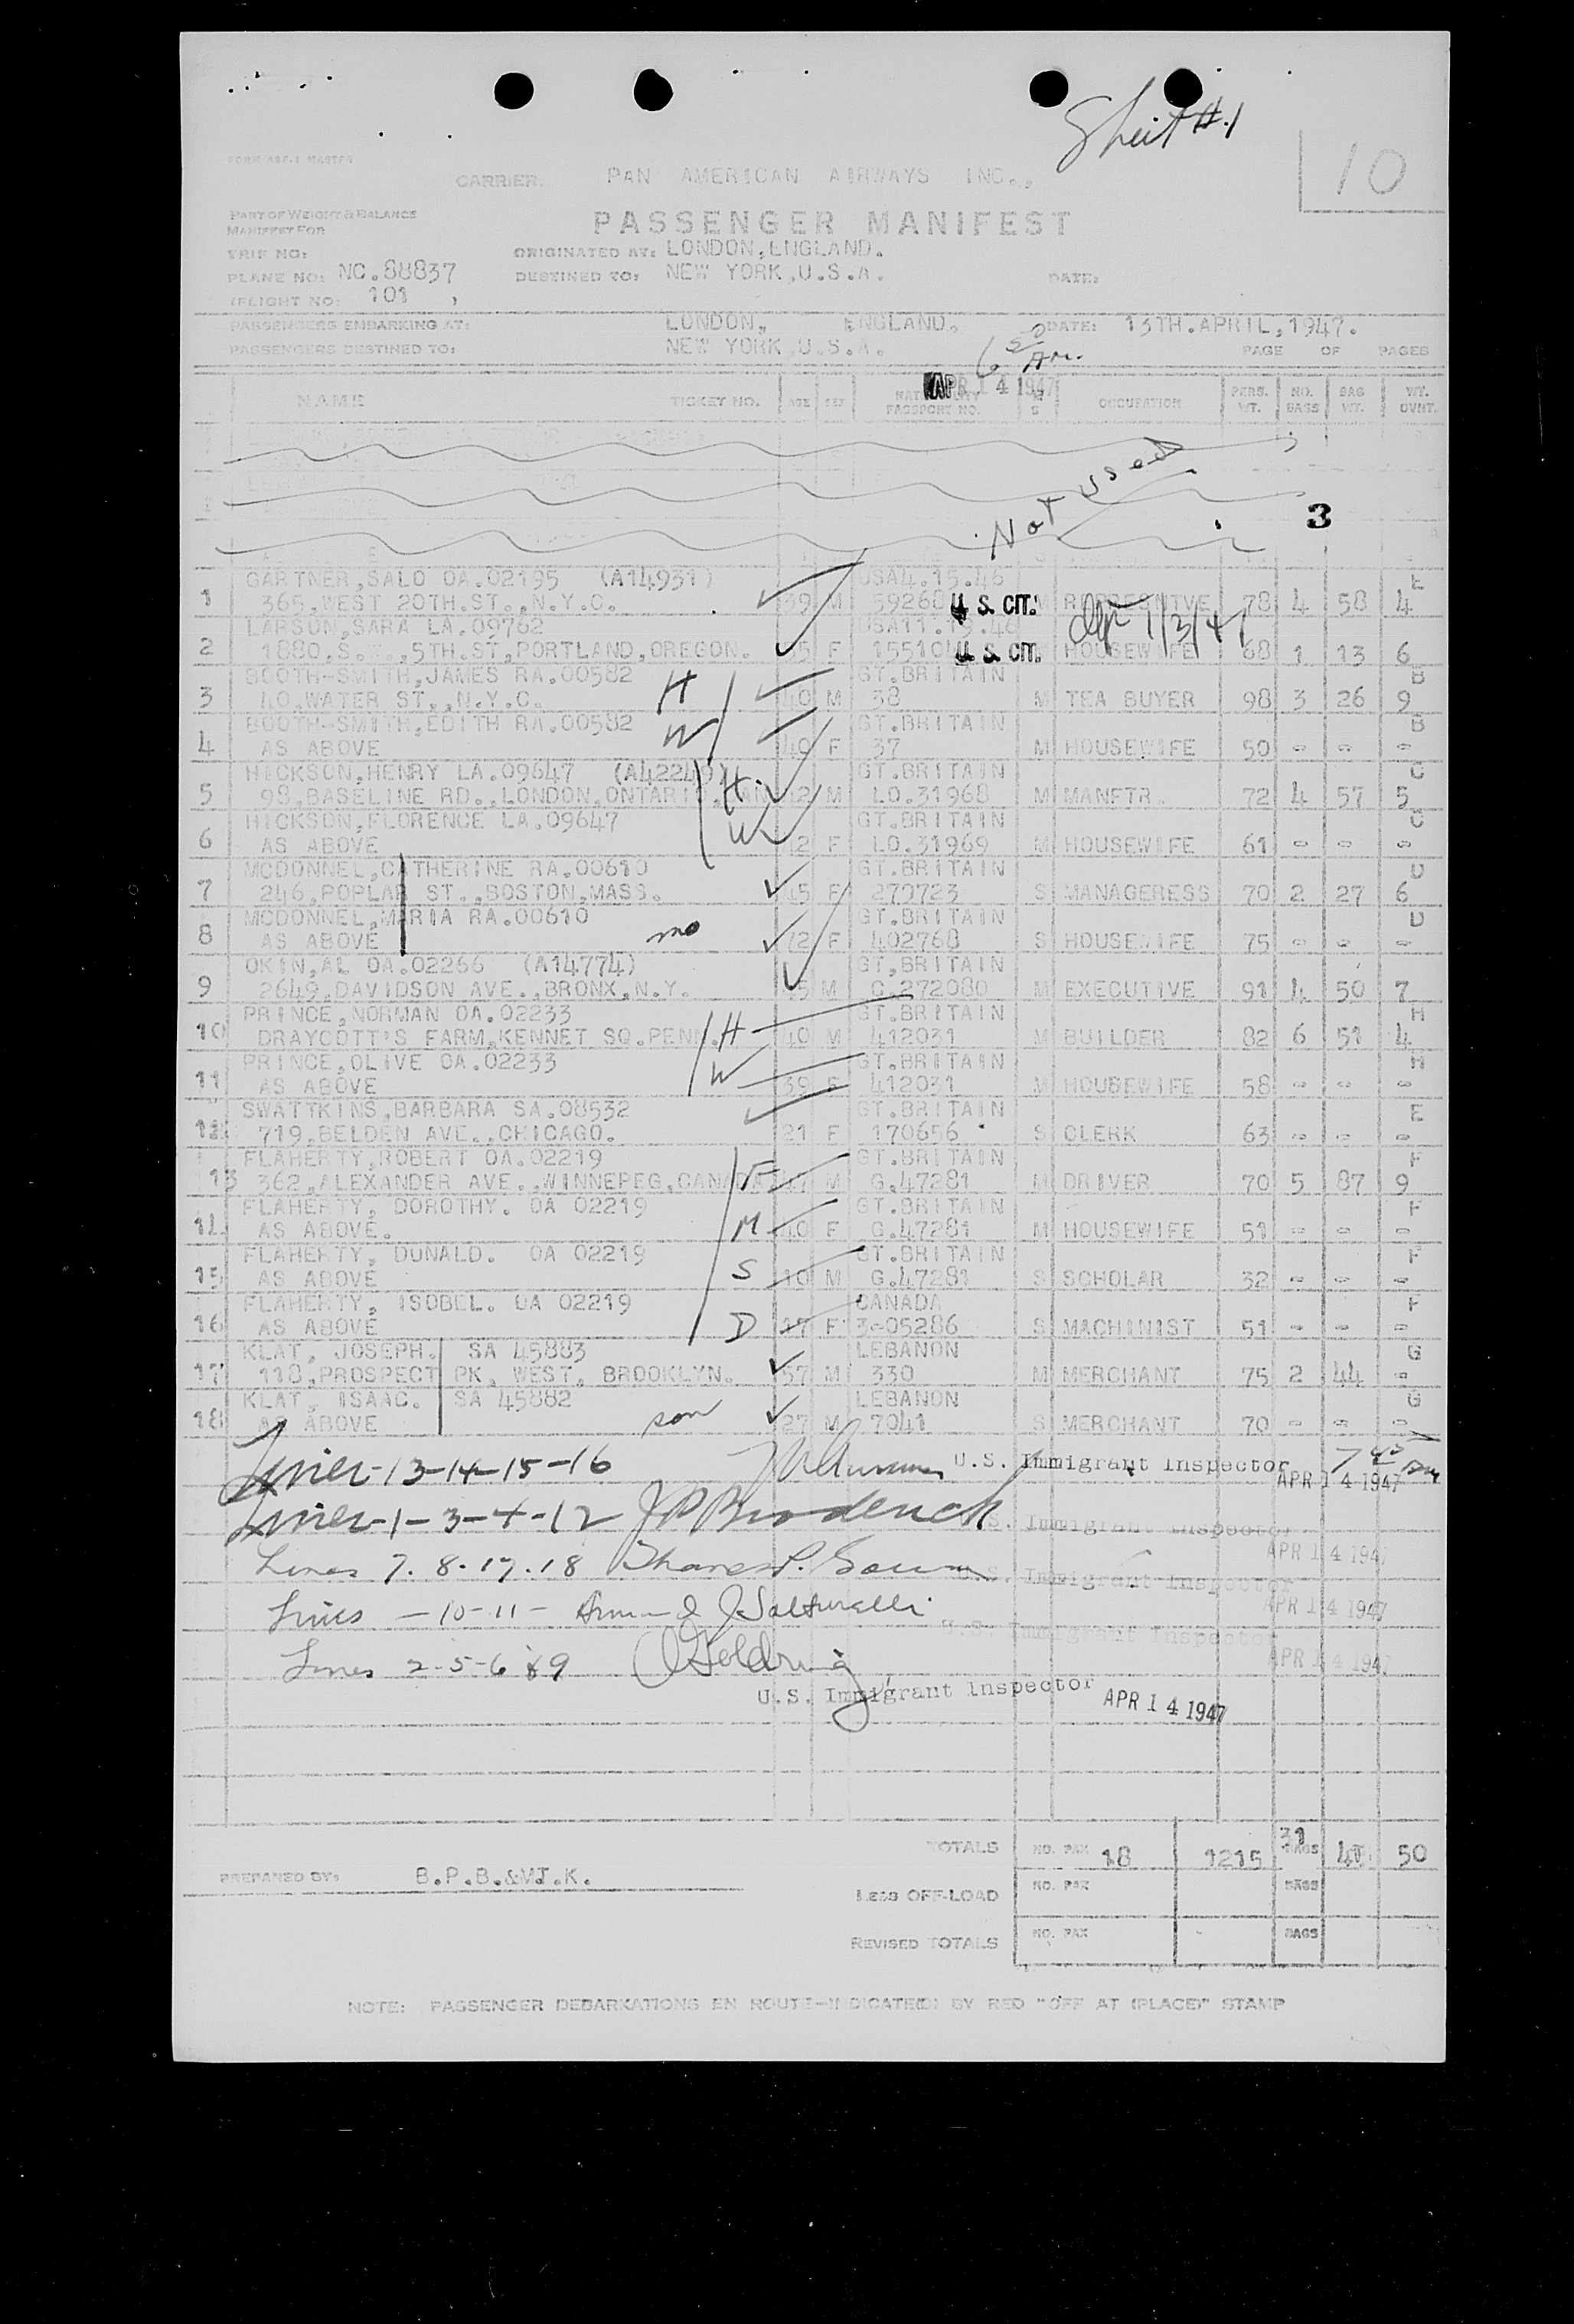 Sheit #1
10
FORM
CARRIER: PAN AMERICAN AIRWAYS INC.,
PART OF WEIGHT & BALANCE
MANIFEST FOR
PASSENGER MANIFEST
TRIP NO:
ORIGINATED AT: LONDON, ENGLAND.
PLANE NO: NC.88837
DESTINED TO: NEW YORK, U.S.A.
DATE:
(FLIGHT NO: 101 )
PASSENGERS EMBARKING AT: LONDON, ENGLAND. DATE: 13TH.APRIL,1947.
PASSENGERS DESTINED TO: NEW YORK U.S.A.
PAGE OF PAGES
APR 14 1947
NAME TICKET NO. AGE SEX PASSPORT NO. OCCUPATION PERS. WT. NO. BAGS BAG WT. WT. OVHT.
Not used
3
GARTNER,SALO OA.02195 (A14931) USA4.15.46 E
1 365,WEST 20TH.ST.,N.Y.C. 39 M U.S. CIT. 78 4 58 4
LARSON,SARA LA.09762
2 1880,S. 5TH.ST,PORTLAND,OREGON. F U.S. CIT. HOUSEWIFE 68 1 13 6
BOOTH-SMITH,JAMES RA.00582 GT.BRITAIN B
3 40,WATER ST.,N.Y.C. H 40 M 38 M TEA BUYER 98 3 26 9
BOOTH-SMITH,EDITH RA.00582 GT.BRITAIN B
4 AS ABOVE W 40 F 37 M HOUSEWIFE 50 - - -
HICKSON,HENRY LA.09647 (A42249) GT.BRITAIN C
5 98,BASELINE RD.,LONDON,ONTARIO H M LO.31968 M MANFTR. 72 4 57 5
HICKSON,FLORENCE LA.09647 GT.BRITAIN C
6 AS ABOVE W F LO.31969 M HOUSEWIFE 61 - - -
MCDONNEL,CATHERINE RA.00610 GT.BRITAIN D
7 246,POPLAR ST.,BOSTON,MASS. 45 F 273723 S MANAGERESS 70 2 27 6
MCDONNEL,MARIA RA.00610 GT.BRITAIN D
8 AS ABOVE mo 72 F 402768 S HOUSEWIFE 75 - - -
OKIN,AL OA.02266 (A14774) GT,BRITAIN
9 2649,DAVIDSON AVE.,BRONX,N.Y. M C.272080 M EXECUTIVE 91 4 50 7
PRINCE,NORMAN OA.02233 GT.BRITAIN H
10 DRAYCOTT'S FARM,KENNET SQ.PENN. H 40 M 412031 M BUILDER 82 6 51 4
PRINCE,OLIVE OA.02233 GT.BRITAIN H
11 AS ABOVE W 39 F 412031 M HOUSEWIFE 58 - - -
SWATTKINS,BARBARA SA.08532 GT.BRITAIN E
12 719,BELDEN AVE.,CHICAGO. 21 F 170656 S CLERK 63 - - -
FLAHERTY,ROBERT OA.02219 GT.BRITAIN F
13 362,ALEXANDER AVE.,WINNEPEG,CANADA F M G.47281 M DRIVER 70 5 87 9
FLAHERTY, DOROTHY. OA 02219 GT.BRITAIN F
14 AS ABOVE. M 40 F G.47281 M HOUSEWIFE 51 - - -
FLAHERTY, DONALD. OA 02219 GT.BRITAIN F
15 AS ABOVE S 10 M G.47281 S SCHOLAR 32 - - -
FLAHERTY, ISOBEL. OA 02219 CANADA F
16 AS ABOVE D 17 F 3-05286 S MACHINIST 51 - - -
KLAT, JOSEPH. SA 45883 LEBANON G
17 118,PROSPECT PK, WEST, BROOKLYN. 57 M 330 M MERCHANT 75 2 44 -
KLAT, ISAAC. SA 45882 LEBANON G
18 AS ABOVE son 27 M 7041 S MERCHANT 70 - - -
Lines-13-14-15-16 U.S. Immigrant Inspector APR 14 1947
Lines-1-3-4-12 J P Broderick U.S. Immigrant Inspector APR 14 1947
Lines 7.8.17.18 U.S. Immigrant Inspector APR 14 1947
Lines -10-11- U.S. Immigrant Inspector APR 14 1947
Lines 2-5-6 & 9 Goldring
U.S. Immigrant Inspector APR 14 1947
TOTALS NO. PAX 18 1215 31 BAGS 50
PREPARED BY: B.P.B.&W.T.K.
LESS OFF-LOAD NO. PAX BAGS
REVISED TOTALS NO. PAX BAGS
NOTE: PASSENGER DEBARKATIONS EN ROUTE-INDICATE(D) BY RED "OFF AT (PLACE)" STAMP